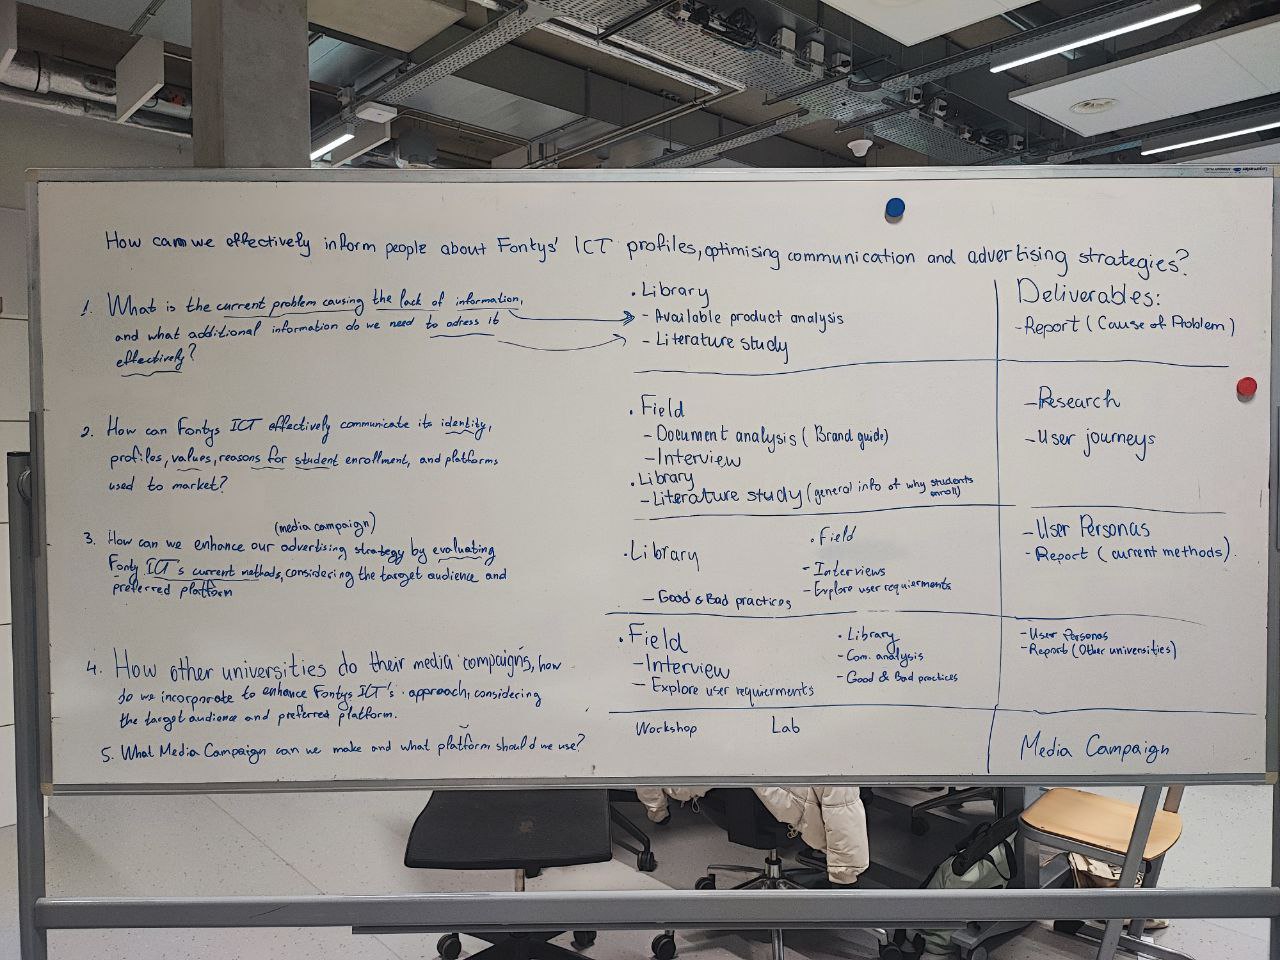 How can we effectively inform people about Fontys' ICT profiles, optimising communication and advertising strategies?
1. What is the current problem causing the lack of information,
and what additional information do we need to adress it
effectively?
. Library
- Available product analysis
- Literature study
Deliverables:
- Report (Cause of Problem)
2. How can Fontys ICT effectively communicate its identity,
profiles, values, reasons for student enrollment, and platforms
used to market?
. Field
- Document analysis (Brand guide)
- Interview
. Library
- Literature study (general info of why students
enroll)
- Research
- User journeys
(media campaign)
3. How can we enhance our advertising strategy by evaluating
Fonty ICT's current methods, considering the target audience and
preferred platform
. Library
- Good & Bad practices
. Field
- Interviews
- Explore user requierments
- User Personas
- Report (current methods).
4. How other universities do their media campaigns, how
do we incorporate to enhance Fontys ICT's approach, considering
the target audience and preferred platform.
. Field
- Interview
- Explore user requierments
. Library
- Com. analysis
- Good & Bad practices
- User Personas
- Report (Other universities)
5. What Media Campaign can we make and what platform should we use?
Workshop Lab
Media Campaign